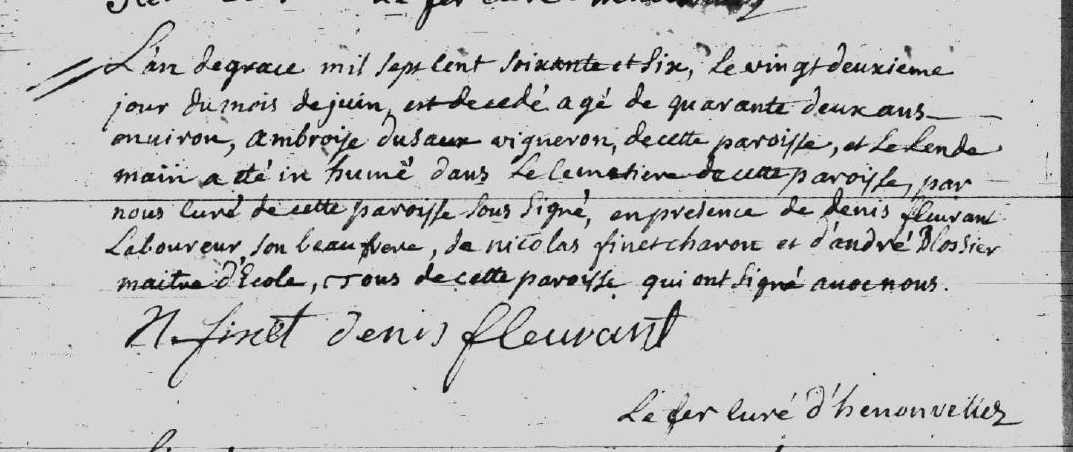 L'an de grace mil sept cent soixante et six, le vingt deuxieme
jour du mois de juin, est decedé agé de quarante deux ans
environ, ambroise dusaux vigneron, de cette paroisse, et le lende
main a eté in humé dans le cemetiere de cette paroisse, par
nous curé de cette paroisse sous signé, en presence de denis fleurant
Laboureur, son beau frere, de nicolas finet charon et d'andré Blossier
maitre d'Ecole, Tous de cette paroisse qui ont signé avec nous.
N. finet denis fleurant
Le fer curé d'henonvillez